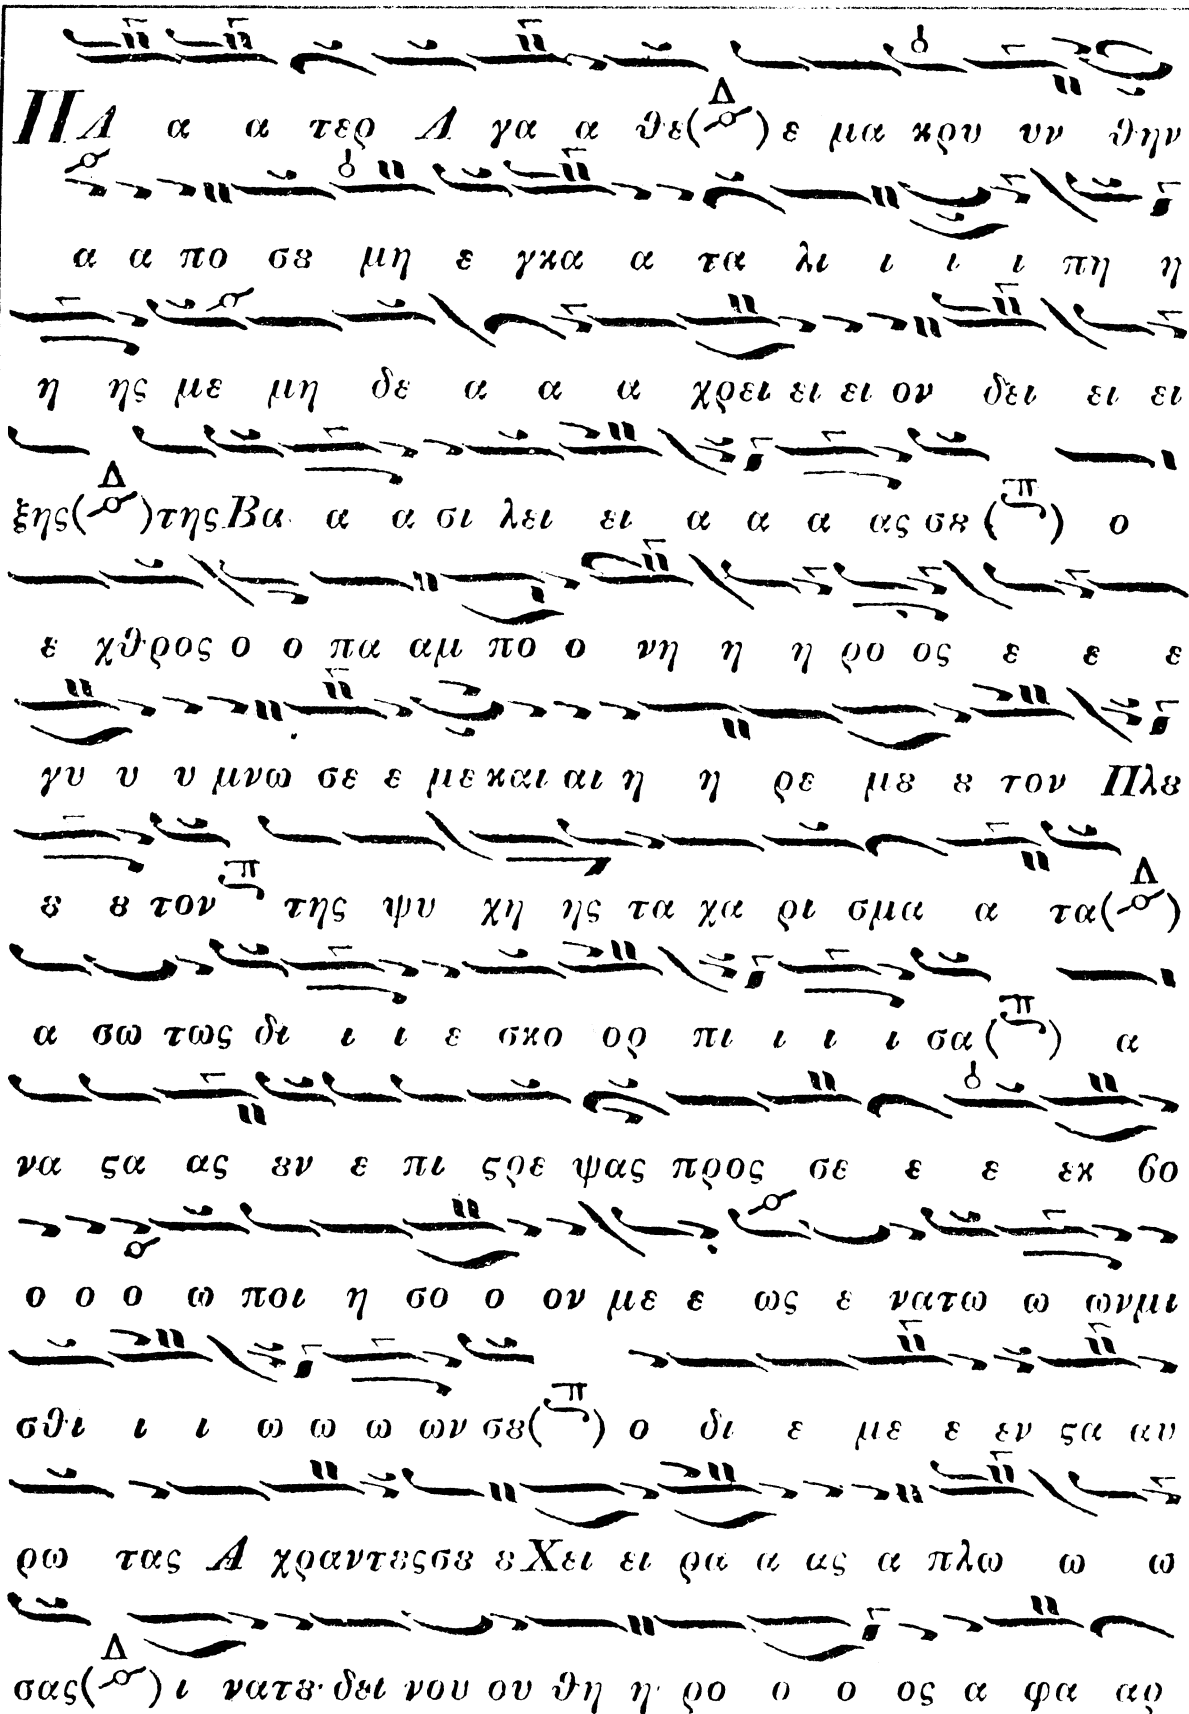 ΠΑ α α τερ Α γα α θε(Δ) ε μα κρυ υν θην
α α πο σȣ μη ε γκα α τα λι ι ι ι πη η
η ης με μη δε α α α χρει ει ει ον δει ει ει
ξης(Δ)της Βα α α σι λει ει α α α ας σȣ (π) ο
ε χθρος ο ο πα αμ πο ο νη η η ρο ος ε ε ε
γυ υ υ μνω σε ε με και αι η η ρε μȣ ȣ τον Πλȣ
ȣ ȣ τον π της ψυ χη ης τα χα ρι σμα α τα(Δ)
α σω τως δι ι ι ε σκο ορ πι ι ι ι σα(π) α
να ϛα ας ȣν ε πι ϛρε ψας προς σε ε ε εκ βο
ο ο ο ω ποι η σο ο ον με ε ως ε νατω ω ωνμι
σθι ι ι ω ω ω ων σȣ(π) ο δι ε με ε εν ϛα αυ
ρω τας Α χραντȣςσȣ ȣ Χει ει ρα α ας α πλω ω ω
σας(Δ) ι νατȣ δει νου ου θη η ρο ο ο ος α φα αρ